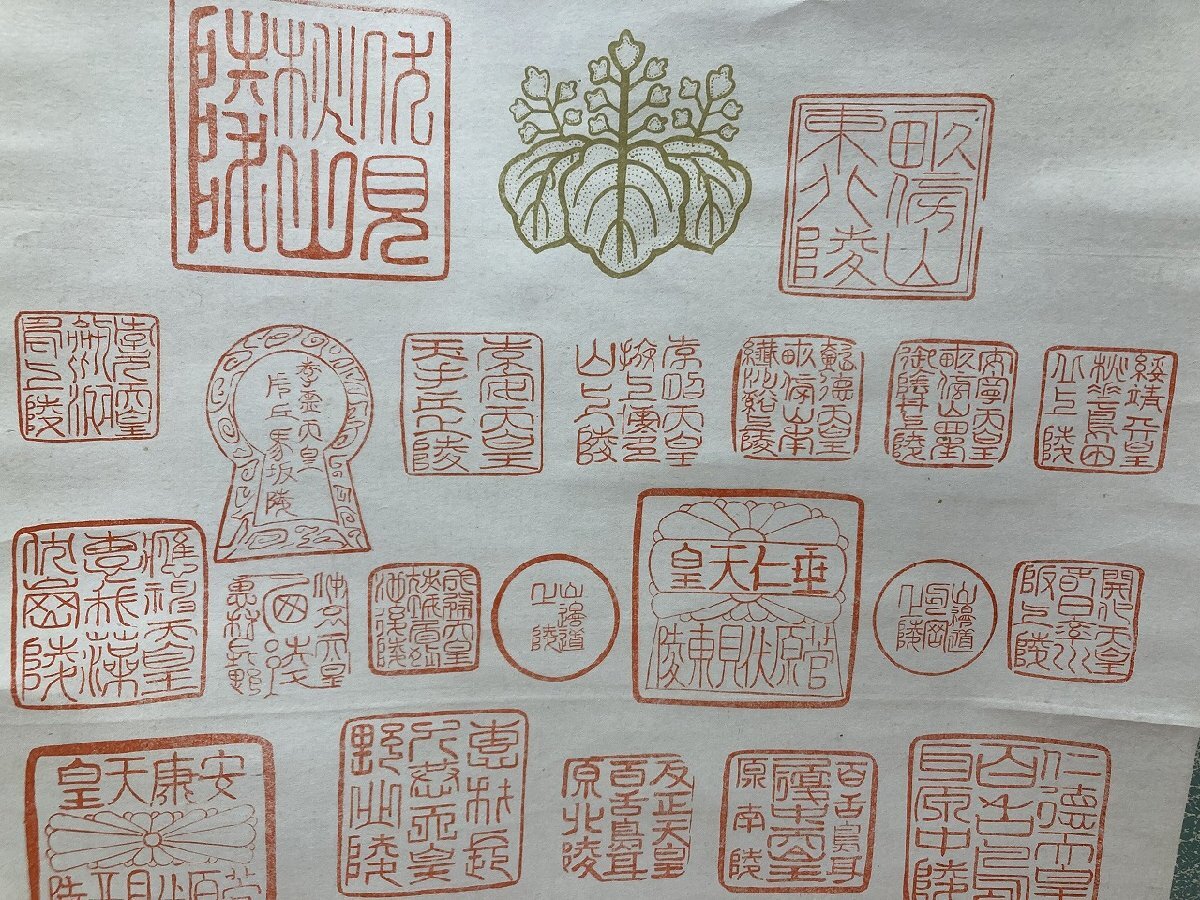 畝傍山
東北陵
伏見
桃山
陵
綏靖天皇
桃花鳥田
丘上陵
安寧天皇
畝傍山西南
御陰井上陵
懿徳天皇
畝傍山南
繊沙谿上陵
孝昭天皇
掖上博多
山上陵
孝安天皇
玉手丘上陵
孝霊天皇
片丘馬坂陵
孝元天皇
開化天皇
春日率川
阪上陵
山邊道
勾岡
上陵
垂仁天皇
菅原伏見東陵
山邊道
上陵
成務天皇
狹城盾列
池後陵
仲哀天皇
應神天皇
恵我藻
伏崗陵
仁徳天皇
百舌鳥
耳原中陵
百舌鳥耳
履中天皇
原南陵
反正天皇
百舌鳥耳
原北陵
恵我長
允恭天皇
野北陵
安康天皇